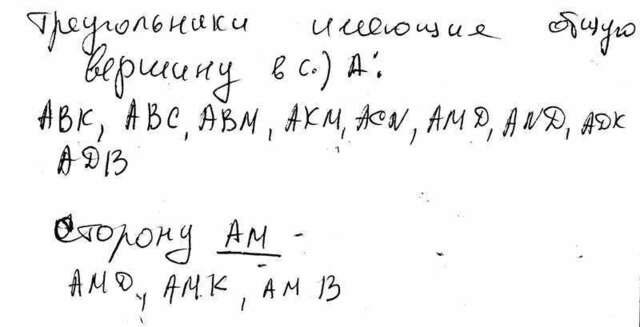 Треугольники имеющие общую
вершину в с.) А:
АВК, АВС, АВМ, АКМ, АСN, АМD, АND, АDК
АDВ
Сторону АМ -
АМD, АМК, АМВ